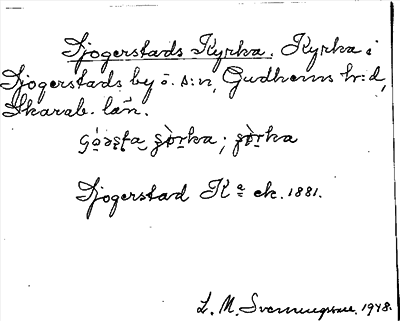 Sjogerstads Kyrka. Kyrka i
Sjogerstads by ö. s:n, Gudhems h:d,
Skarab. län.
Sjogerstad Ka ek. 1881.
L. M. Svenungsson, 1948.